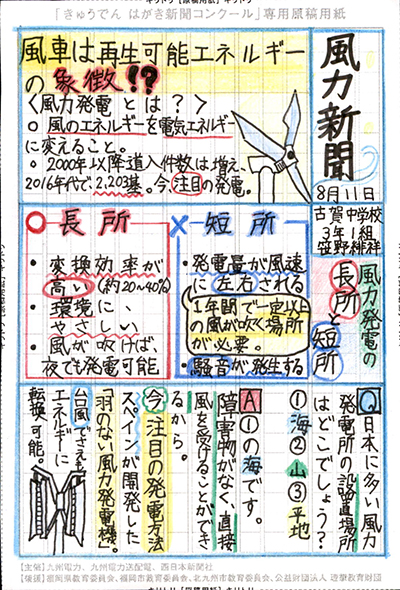 「きゅうでん はがき新聞コンクール」専用原稿用紙
風力新聞
8月11日
古賀中学校
3年1組
笹野緋祥
風車は再生可能エネルギー
の象徴!?
〈風力発電とは?〉
○ 風のエネルギーを電気エネルギー
に変えること。
○ 2000年以降導入件数は増え、
2016年代で、2,203基。今、注目の発電。
風力発電の
長所と短所
×短所
・発電量が風速
に左右される
1年間で一定以上
の風が吹く場所
が必要。
・騒音が発生する
○長所
・変換効率が
高い(約20~40%)
・環境に、
やさしい
・風が吹けば、
夜でも発電可能
Q日本に多い風力
発電所の設置場所
はどこでしょう?
①海②山③平地
A①の海です。
障害物がなく、直接
風を受けることができ
るから。
今、注目の発電方法
スペインが開発した
「羽のない風力発電機」。
台風でさえも
エネルギーに
転換可能。
【主催】九州電力、九州電力送配電、西日本新聞社
【後援】福岡県教育委員会、福岡市教育委員会、北九州市教育委員会、公益財団法人 理想教育財団